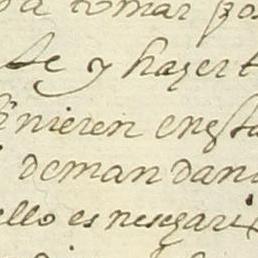 a tomar pos
se y hazer t
inieren en esta
demandana
ello es nesesari